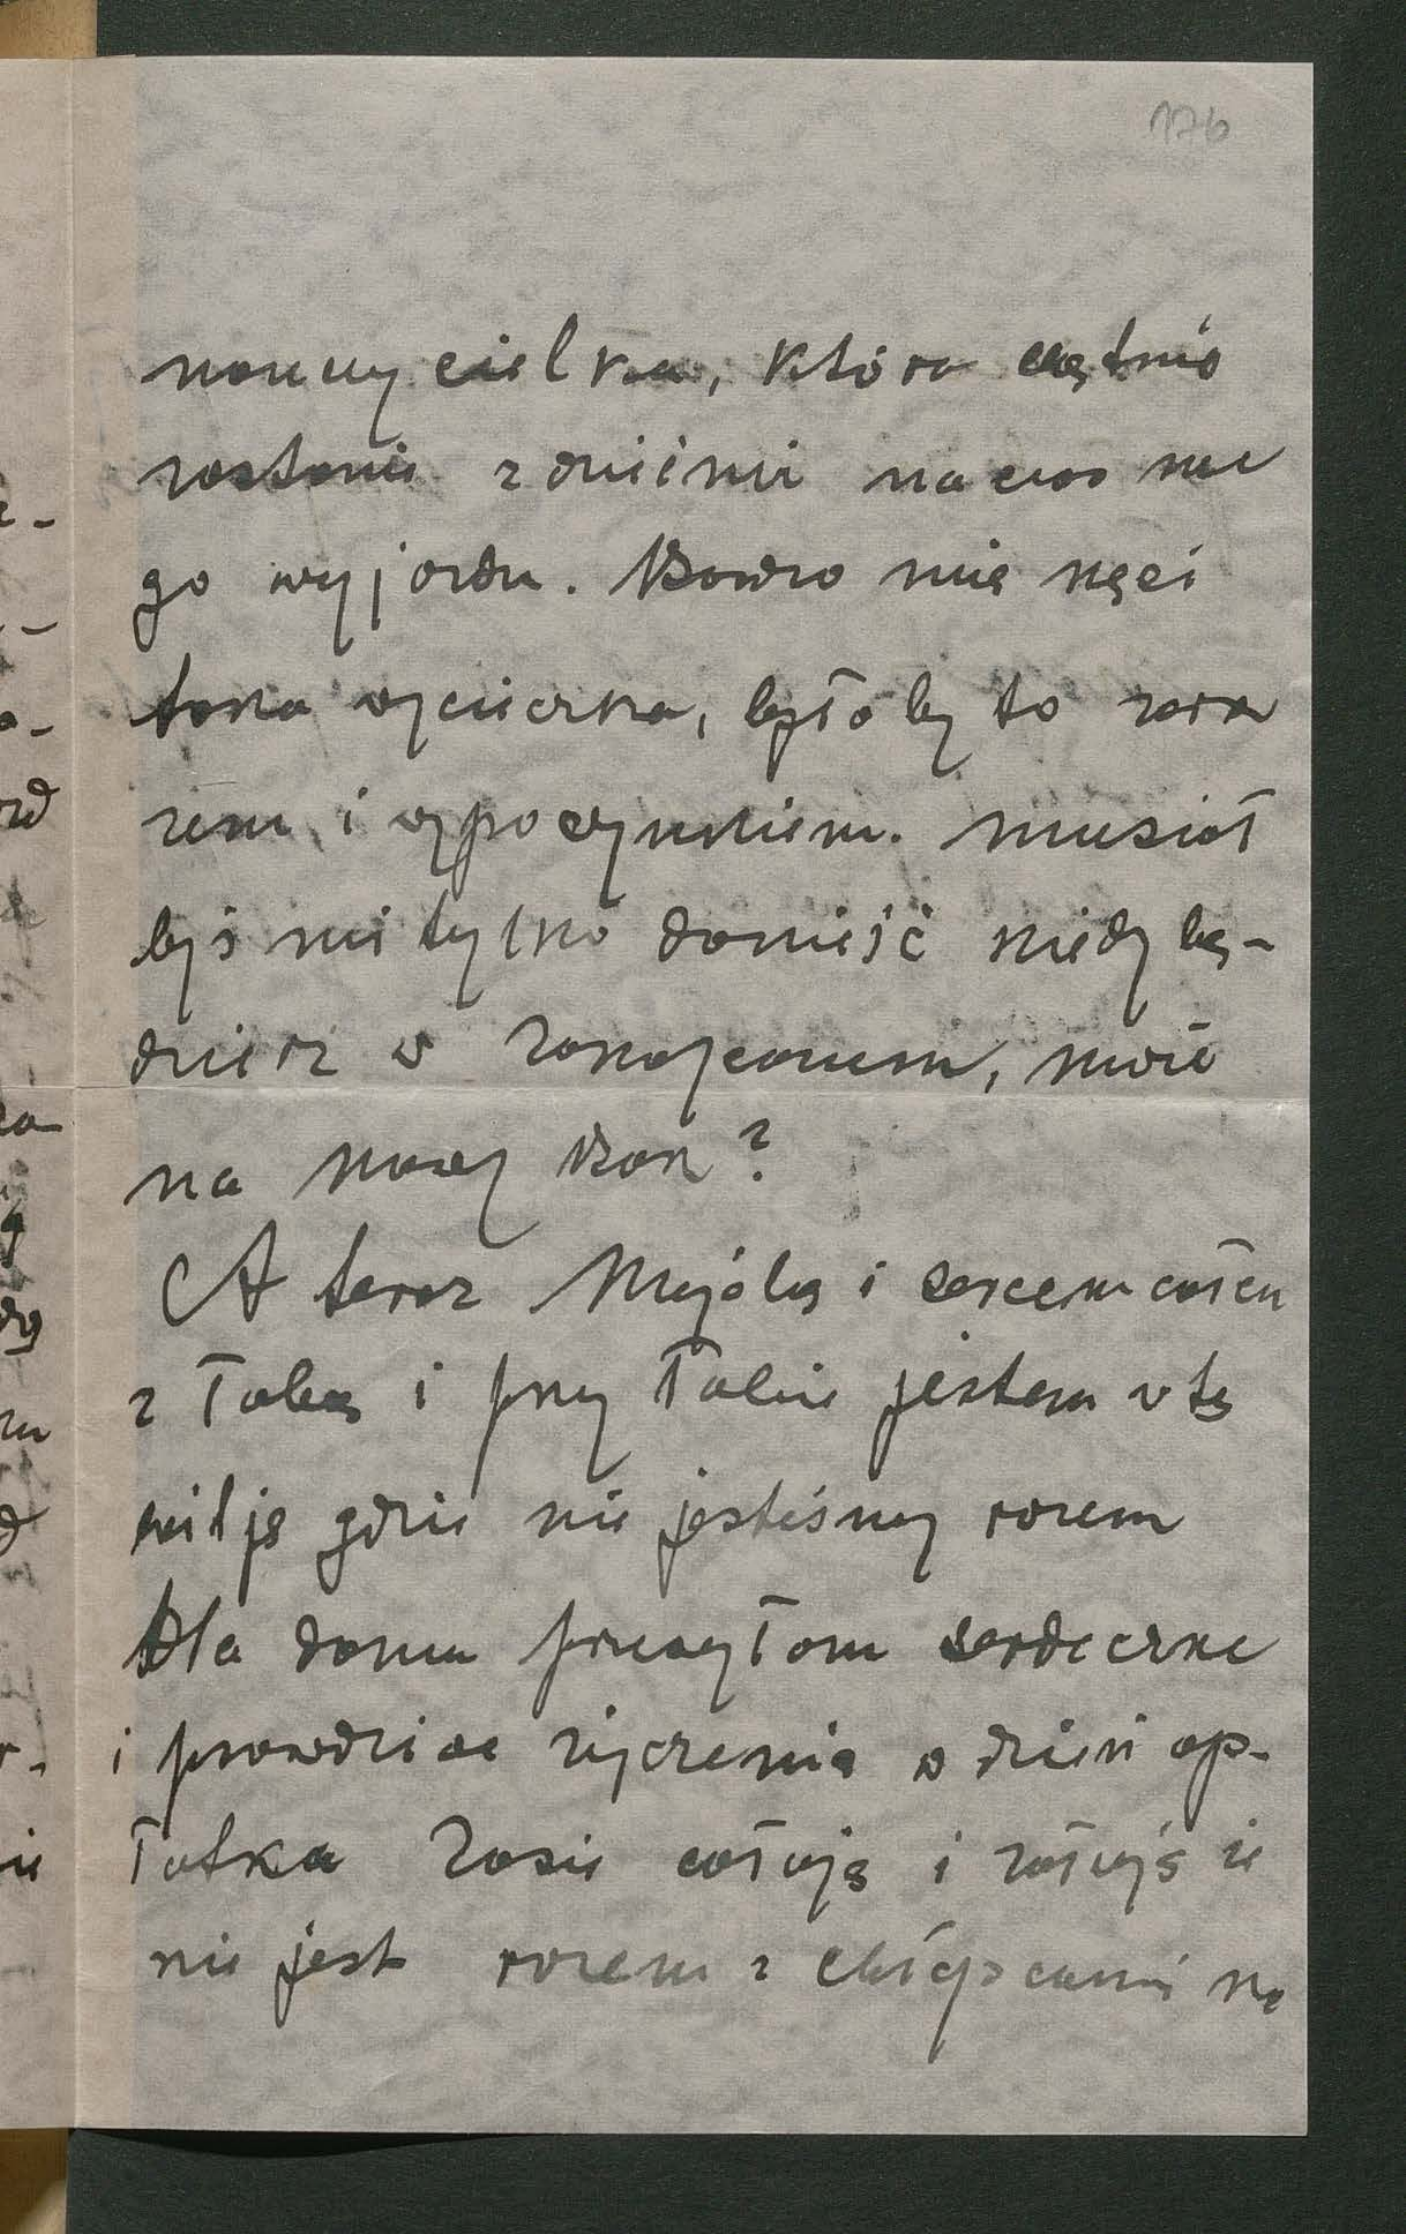 176
nauczycielka, która chętnie
zostanie z dziećmi na czas me
go wyjazdu. Bardzo mię nęci
taka wycieczka, byłoby to zara
zem i wypoczynkiem. Musiał
byś mi tylko donieść kiedy bę-
dziesz w Zakopanem, może
na Nowy Rok?
A teraz Myślą i sercem całem
z Tobą i przy Tobie jestem w tę
wilję gdzie nie jesteśmy razem
Dla domu przesyłam serdeczne
i prawdziwe życzenia w dzień op-
łatka Zosię całuję i żałuję że
nie jest razem z chłopcami na